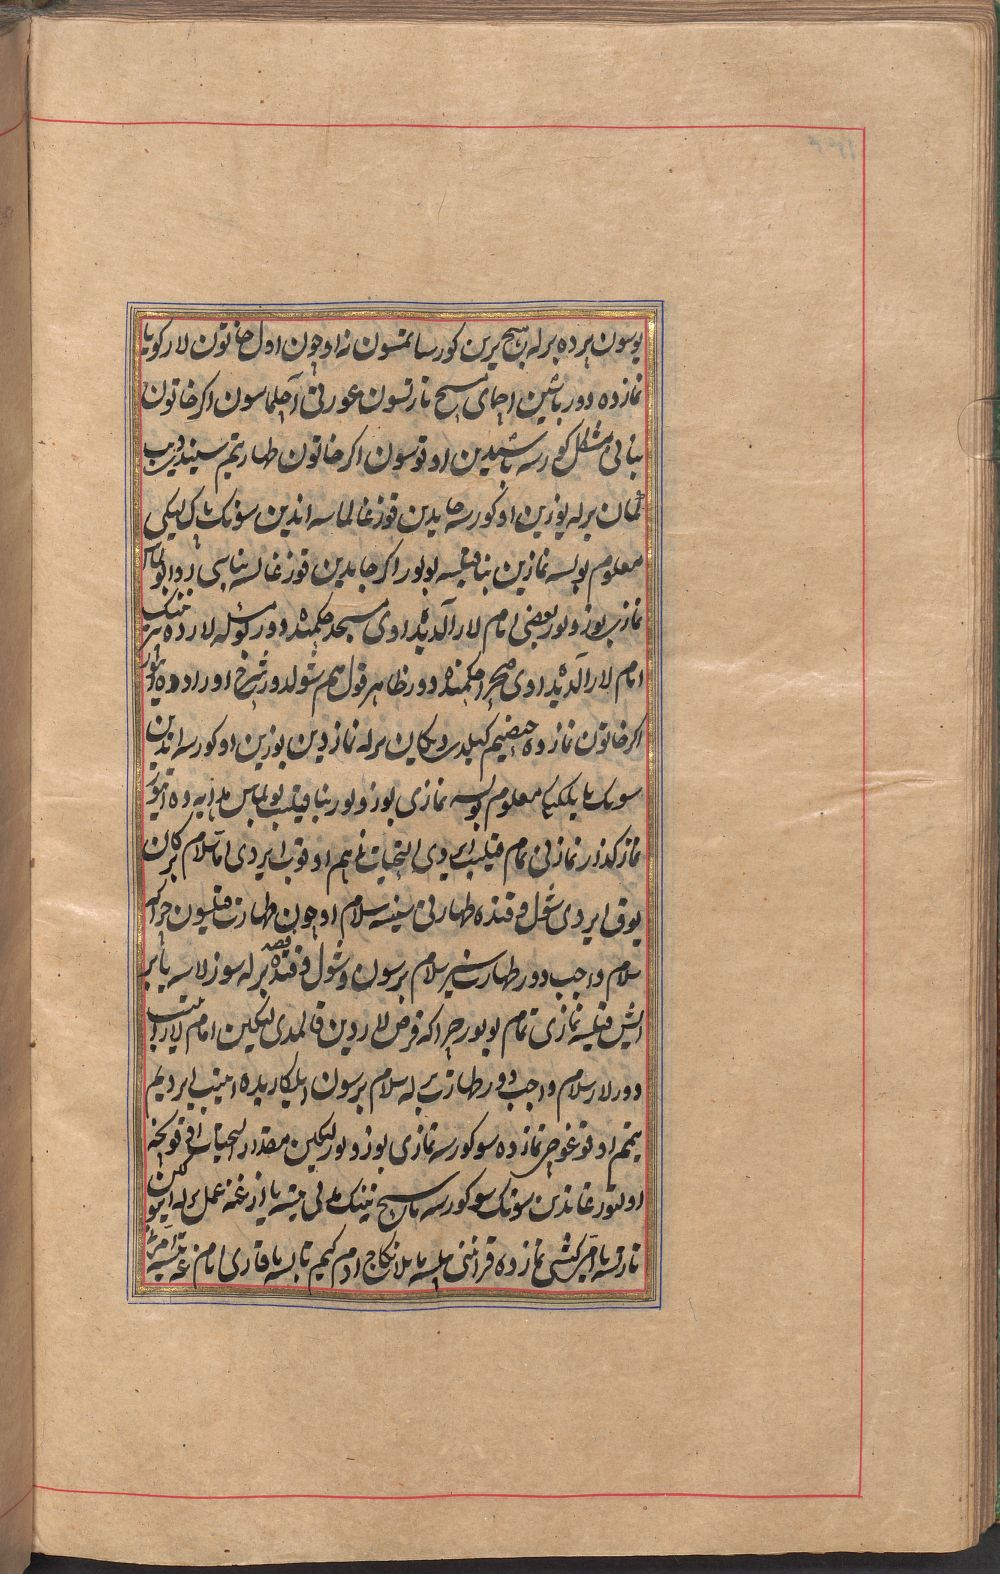 بوسون پرده برله هیچ یرین کورساتمسون نه اوچون اول خاتون لار کویا
نمازده دور باشین اچمای مسح تارتسون عورتنی آچلماسون اکر خاتون
بنانی مشکل کورسه باشیدین اوقوسون اکر خاتون طهارتیم سیندی دیب
کمان برله یوزین اوکورسه جایدین قوزغالماسه اندین سونک پاک لیکی
معلوم بولسه نمازین بنا قیلسه بولور اکر جایدین قوزغالسه بناسی روا بولماس
نمازی بوزولور بعضی امام لار آلدیدا اوی مسجد حکمیده دور بو مسئله لارده نینک
امام لار آلدیدا اوی صحرا حکمیده دور ظاهر قول هم شولدور شرح اوراد ده
اکر خاتون نمازده حیضیم کیلدی دیکان برله نمازدین یوزین اوکورسه اندین
سونک پاکلیکی معلوم بولسه نمازی بوزولور بنا قیلیب بولماس هدایه ده
نماز کذار نمازنی تمام قیلیب ایردی التحیات نی هم اوقوب ایردی اما سلام برکان
یوق ایردی شول وقتده طهارتی سینسه سلام اوچون طهارت قیلسون چراکه
سلام واجب دور طهارت بیر سلام برسون و شول وقتده قصد برله سوزلاسه یا بر
ایش قیلسه نمازی تمام بولور چراکه فرض لاردین قالمدی لیکین امام لار
دورلار سلام واجب دور طهارت برله سلام برسون ایلکاریده ایتیب ایردیم
ییتیم اوقوغوچی نمازده سو کورسه نمازی بوزولور لیکین مقدار التحیات اوقوغونچه
اولتورغاندین سونک سو کورسه یا مسح نینک مدتی یتسه یا ازغنه عمل برله ایتوکین
تارتسه یا امی کشی نمازده قراتنی بیلسه یا یلانکاچ ادم کییم تابسه یا قاری امام